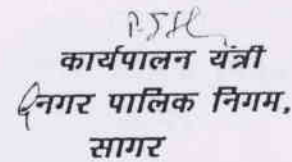 कार्यपालन यंत्री
नगर पालिक निगम,
सागर